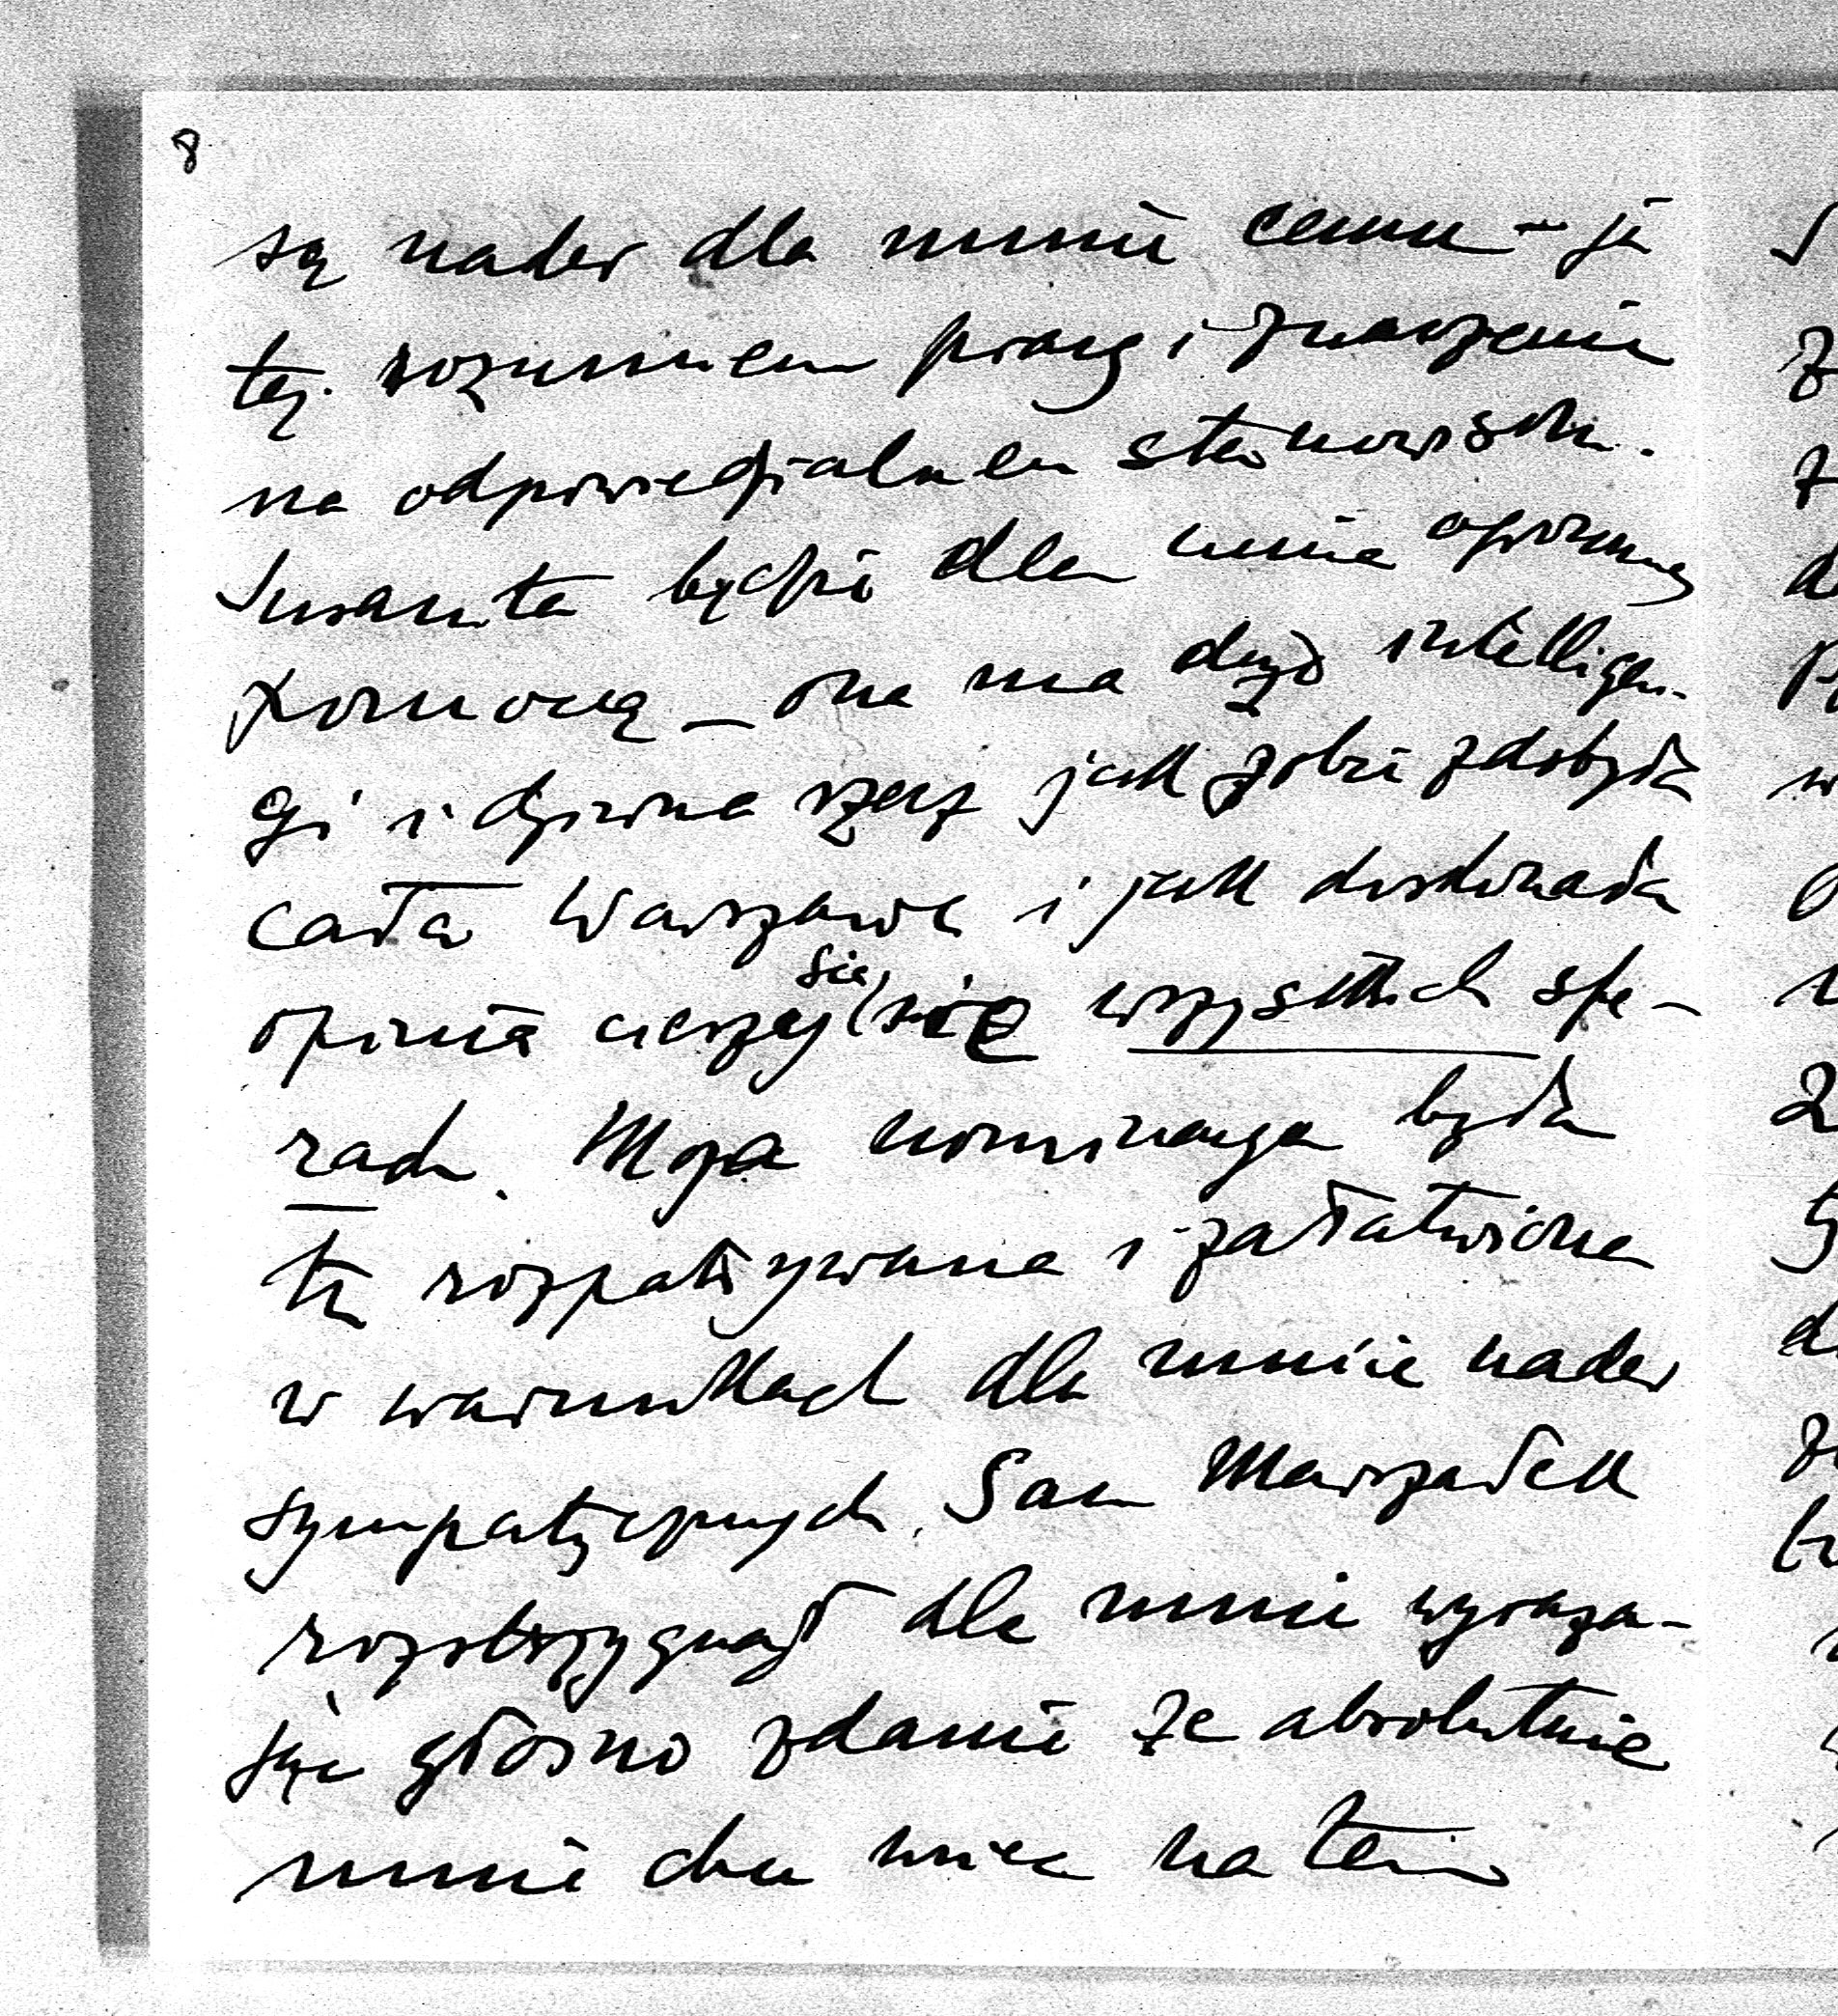 8
są nader dla mnie cenne – ja
też rozumiem pracę i znaczenie
na odpowiedzialnem stanowisku.
będzie dla mnie ogromną
pomocą – ona ma dużo intelligen-
cji i dziwna rzecz jak sobie zdobyła
całą Warszawę i jak doskonałą
opinią cieszy się wszystkich sfe-
rach. Moja nominacja była
tu rozpatrywana i załatwiona
w warunkach dla mnie nader
sympatycznych. Sam Marszałek
rozstrzygnął dla mnie wyraża-
jąc głośno zdanie że absolutnie
mnie chce mieć na tem